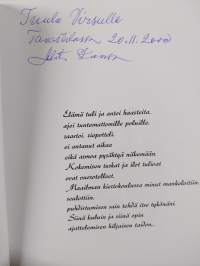 Tuula Virsulle
20.11.2000
Elämä tuli ja antoi haasteita,
ajoi tuntemattomille poluille,
raastoi, riepotteli
ei antanut aikaa
eikä armoa pysähtyä näkemään.
Kokemisen tuskat ja ilot tulivat
ovat vuorotellen.
Maailman kiertokoulussa minut mankeloitiin,
seulottiin,
puhdistumisen sain tehdä itse työkönäni.
Siinä kuluin ja siinä opin
ajattelemisen hiljaisen taidon..